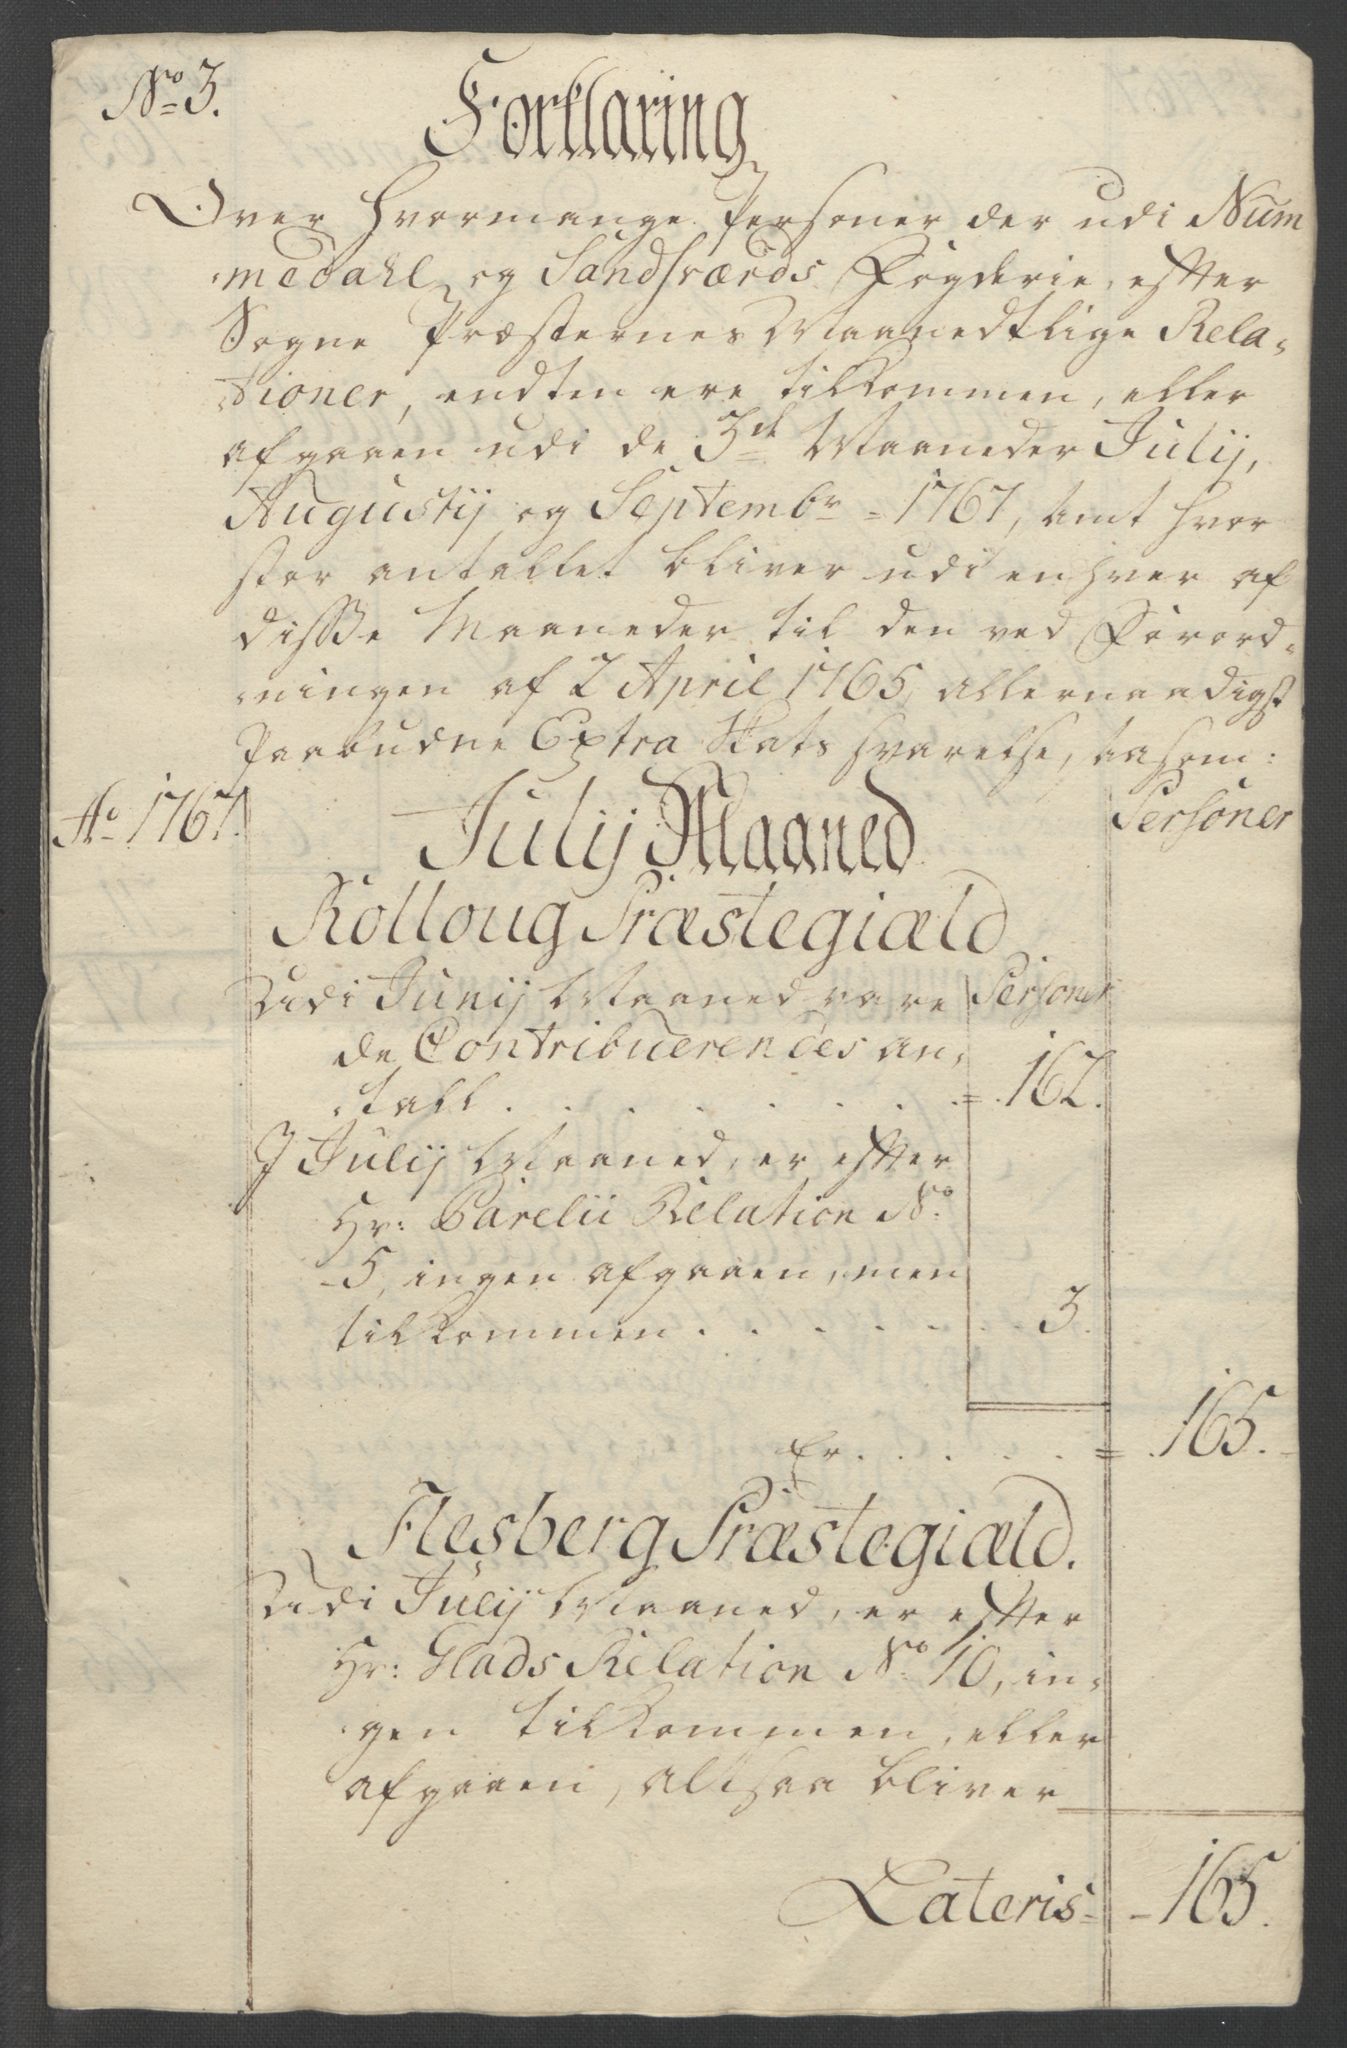 No 3.
Forklaring
Over Hvormange Personer der udi Num¬
medahl og Sandsværds Fogderie, efter
Sogne Præsternes Maanedtlige Rela¬
tioner, endten ere tilkommen, eller
afgaaen udi de 3de Maaneder Julij,
Augustij og Septembr = 1767, samt hvor
stor antallet bliver udi en hver af
disse Maaneder til den ved Forord¬
ningen af 2 April 1765, allernaadigst
Paabudne Extra Skats svarelse, saasom:
Ao 1767.
Julij Maaned
Personer
Rolloug Præstegiæld
Udi Junij Maaned vare
Personer
de Contribuerendes an¬
tall . . . . . . . = 162.
I Julij Maaned, er efter
Hr: Parelii Relation No
5, ingen afgaaen, men
tilkommen . . . . . . 3.
Er . . . . . = 165.
Flesberg Præstegiæld.
Udi Julij Maaned, er efter
Hr: Glads Relation No 10, in¬
gen tilkommen, eller
afgaaen, altsaa bliver
Lateris = 165.